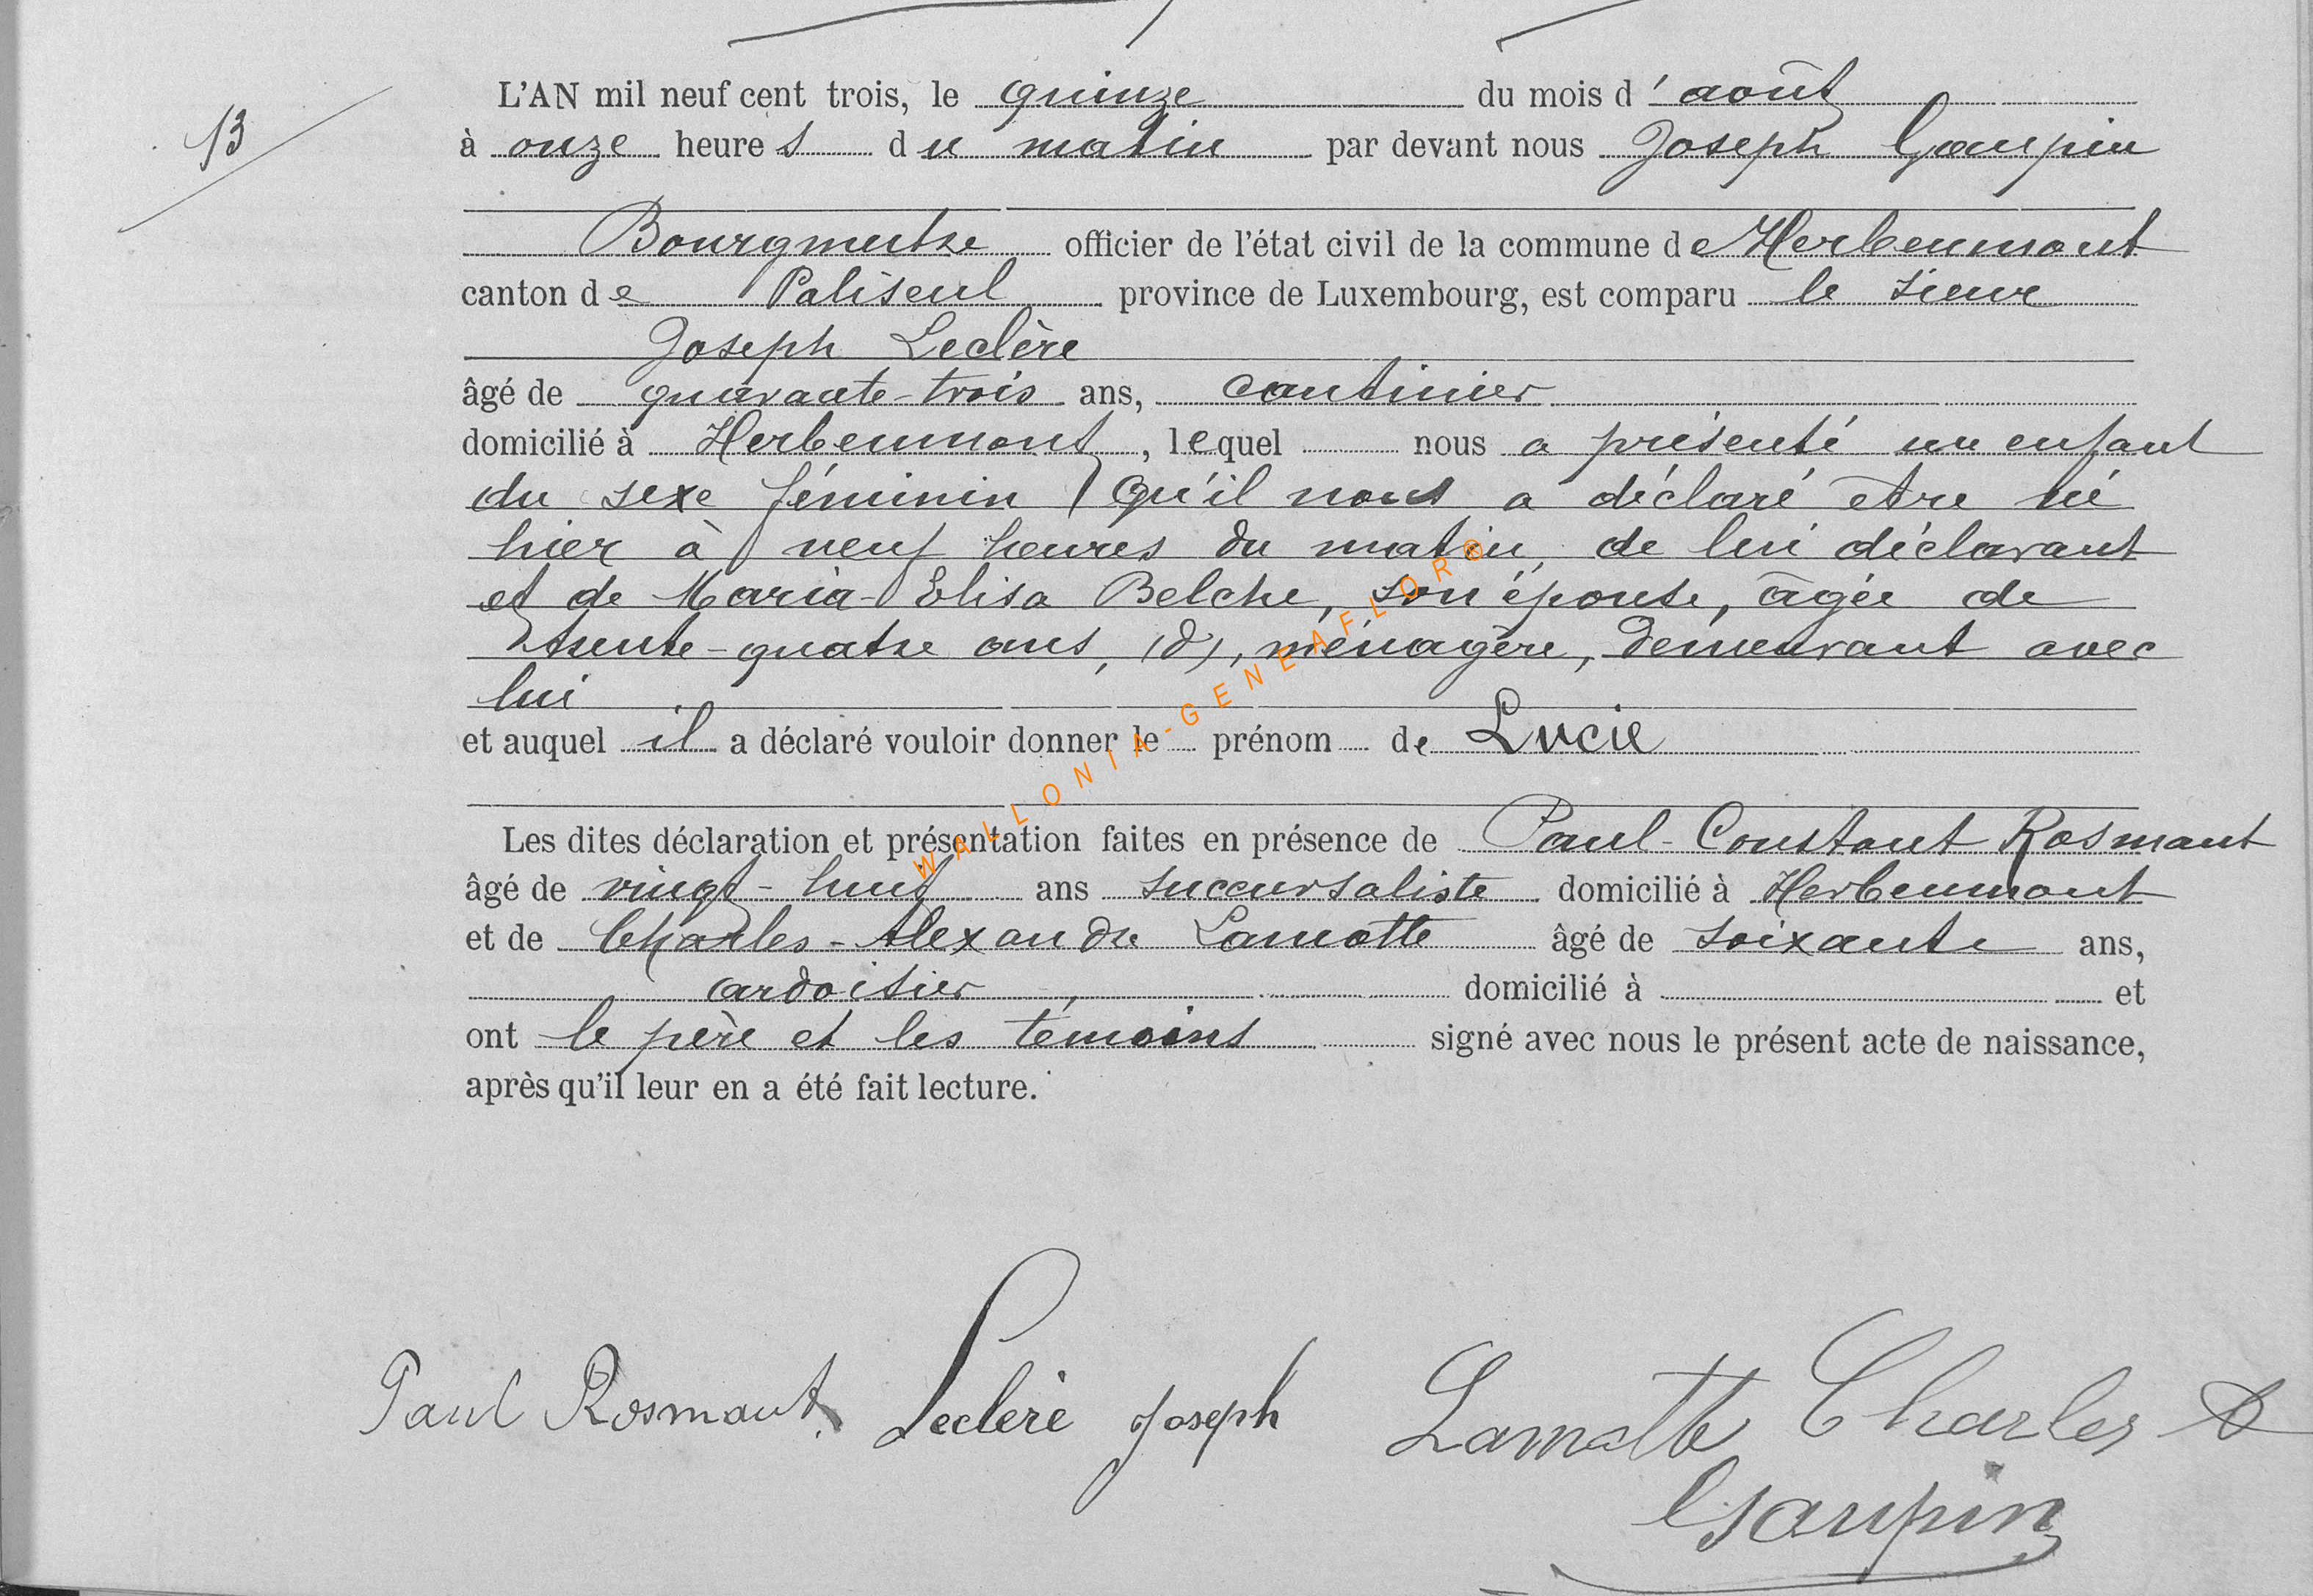 13
L'AN mil neuf cent trois, le quinze du mois d'août
à onze heures du matin par devant nous Joseph Gaupin
Bourgmestre officier de l'état civil de la commune de Herbeumont
canton de Paliseul province de Luxembourg, est comparu le sieur
Joseph Leclère
âgé de quarante-trois ans, cantinier
domicilié à Herbeumont, lequel nous a présenté un enfant
du sexe féminin qu'il nous a déclaré être né
hier à neuf heures du matin, de lui déclarant
et de Maria-Elisa Belche, son épouse, âgée de
trente-quatre ans, (d), ménagère, demeurant avec
lui
et auquel il a déclaré vouloir donner le prénom de Lucie
Les dites déclaration et présentation faites en présence de Paul-Constant Rosmant
âgé de vingt-huit ans succursaliste domicilié à Herbeumont
et de Charles-Alexandre Lamotte âgé de soixante ans,
ardoisier domicilié à et
ont le père et les témoins signé avec nous le présent acte de naissance,
après qu'il leur en a été fait lecture.
WALLONIA-GENEAFLOR®
Paul Rosmant. Leclère Joseph Lamotte Charles A
Gaupin